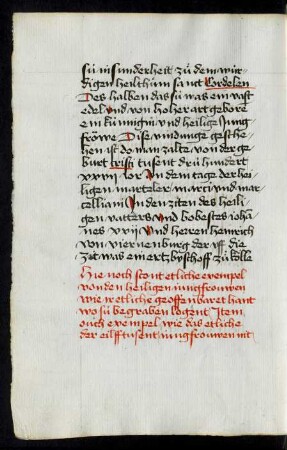 sü in sunderheit zü dem wür-
digen heilthům sant Cordelen
Des halben das sü was ein vast
edel und von hoher art gebore
ein künnigin und heilge Jung
fröwe Dise vindunge gesche-
hen ist do man zalte von der ge
burt cristi tusent drü hundert
xxvij ior An dem tage der hei-
ligen marteler marci und mar-
celliani In den ziten des heili-
gen vatters und bobestes joha-
nes xxij Und herren henrich
von viernenburg der uff die
zit was ein ertzbyschoff zü kölle
Hie noch stont etliche exempel
von den heiligen jungfrouwen
wie ir etliche geoffenbaret hant
wo sü begraben logent Item
ouch exempel wie das etliche
der eilff tusent jungfrouwen mit